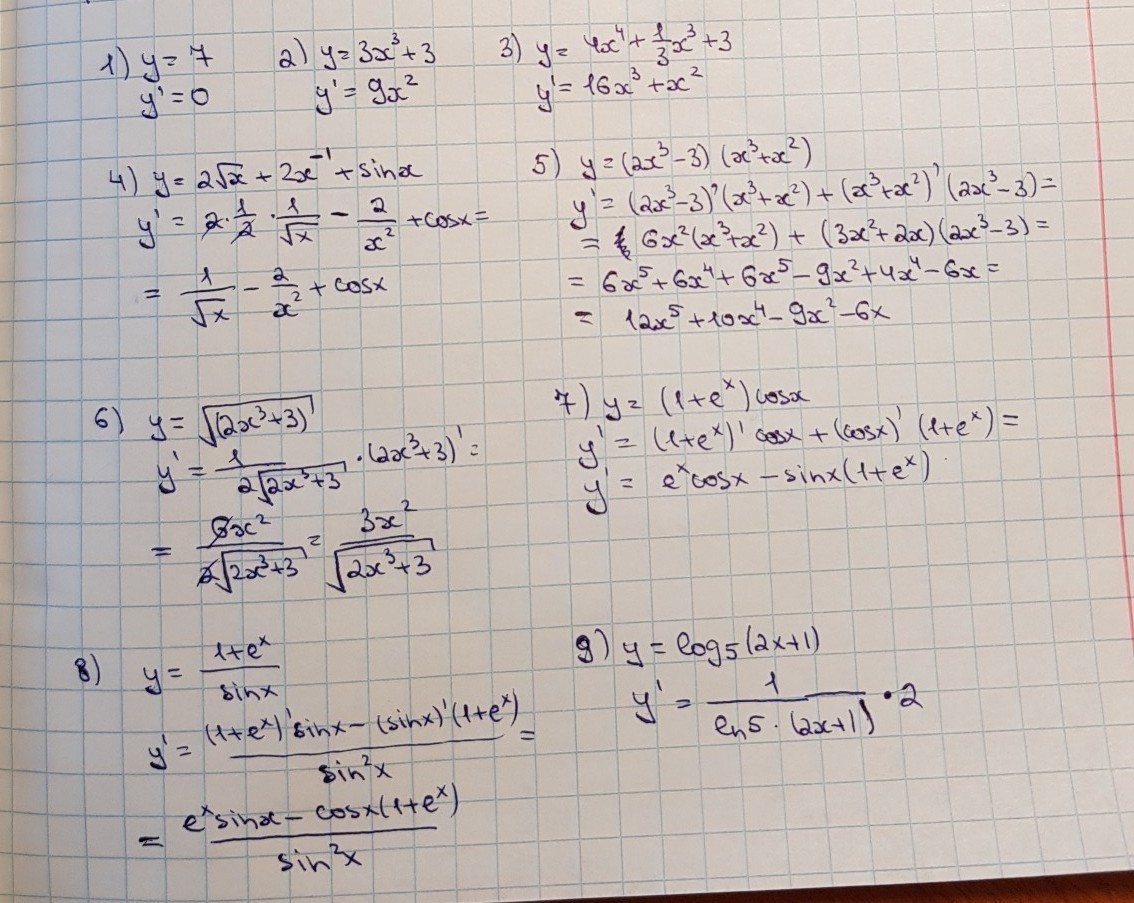 1) y = 7
y' = 0
2) y = 3x³ + 3
y' = 9x²
3) y = 4x⁴ + 1/3 x³ + 3
y' = 16x³ + x²
4) y = 2√x + 2x⁻¹ + sinx
y' = 2 · 1/2 · 1/√x − 2/x² + cosx =
= 1/√x − 2/x² + cosx
5) y = (2x³ − 3) (x³ + x²)
y' = (2x³ − 3)' (x³ + x²) + (x³ + x²)' (2x³ − 3) =
= 6x² (x³ + x²) + (3x² + 2x) (2x³ − 3) =
= 6x⁵ + 6x⁴ + 6x⁵ − 9x² + 4x⁴ − 6x =
= 12x⁵ + 10x⁴ − 9x² − 6x
6) y = √(2x³ + 3)
y' = 1/(2√(2x³ + 3)) · (2x³ + 3)' =
= 6x²/(2√(2x³ + 3)) = 3x²/√(2x³ + 3)
7) y = (1 + eˣ) cosx
y' = (1 + eˣ)' cosx + (cosx)' (1 + eˣ) =
y' = eˣ cosx − sinx (1 + eˣ)
8) y = (1 + eˣ)/sinx
y' = ((1 + eˣ)' sinx − (sinx)' (1 + eˣ))/sin²x =
= (eˣ sinx − cosx (1 + eˣ))/sin²x
9) y = log₅ (2x + 1)
y' = 1/(ln5 · (2x + 1)) · 2